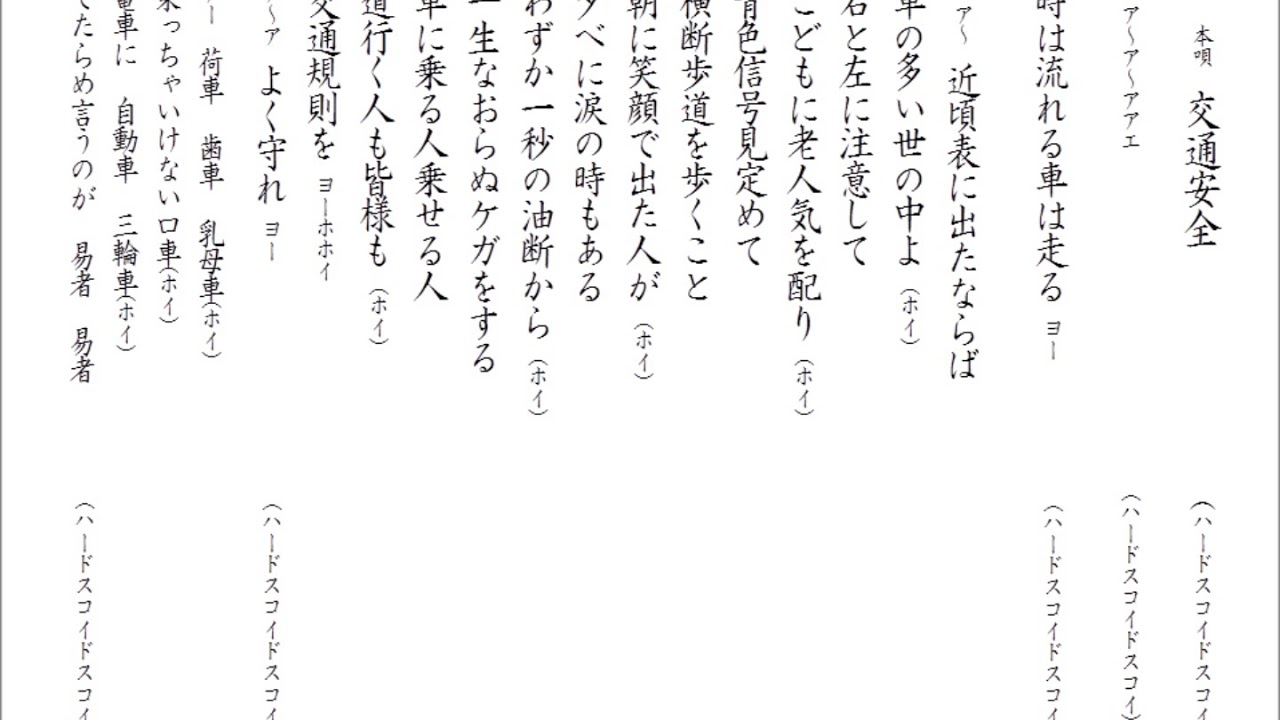 本唄 交通安全 （ハードスコイドスコイ
ア〜ア〜アアエ （ハードスコイドスコイ）
時は流れる車は走る ヨー （ハードスコイドスコイ
ア〜 近頃表に出たならば
車の多い世の中よ（ホイ）
右と左に注意して
こどもに老人気を配り（ホイ）
青色信号見定めて
横断歩道を歩くこと
朝に笑顔で出た人が（ホイ）
夕べに涙の時もある
わずか一秒の油断から（ホイ）
一生なおらぬケガをする
車に乗る人乗せる人
道行く人も皆様も（ホイ）
交通規則を ヨーホホイ
〜ア よく守れ ヨー （ハードスコイドスコイ
ー 荷車 歯車 乳母車（ホイ）
乗っちゃいけない口車（ホイ）
電車に 自動車 三輪車（ホイ）
でたらめ言うのが 易者 易者 （ハードスコイドスコイ